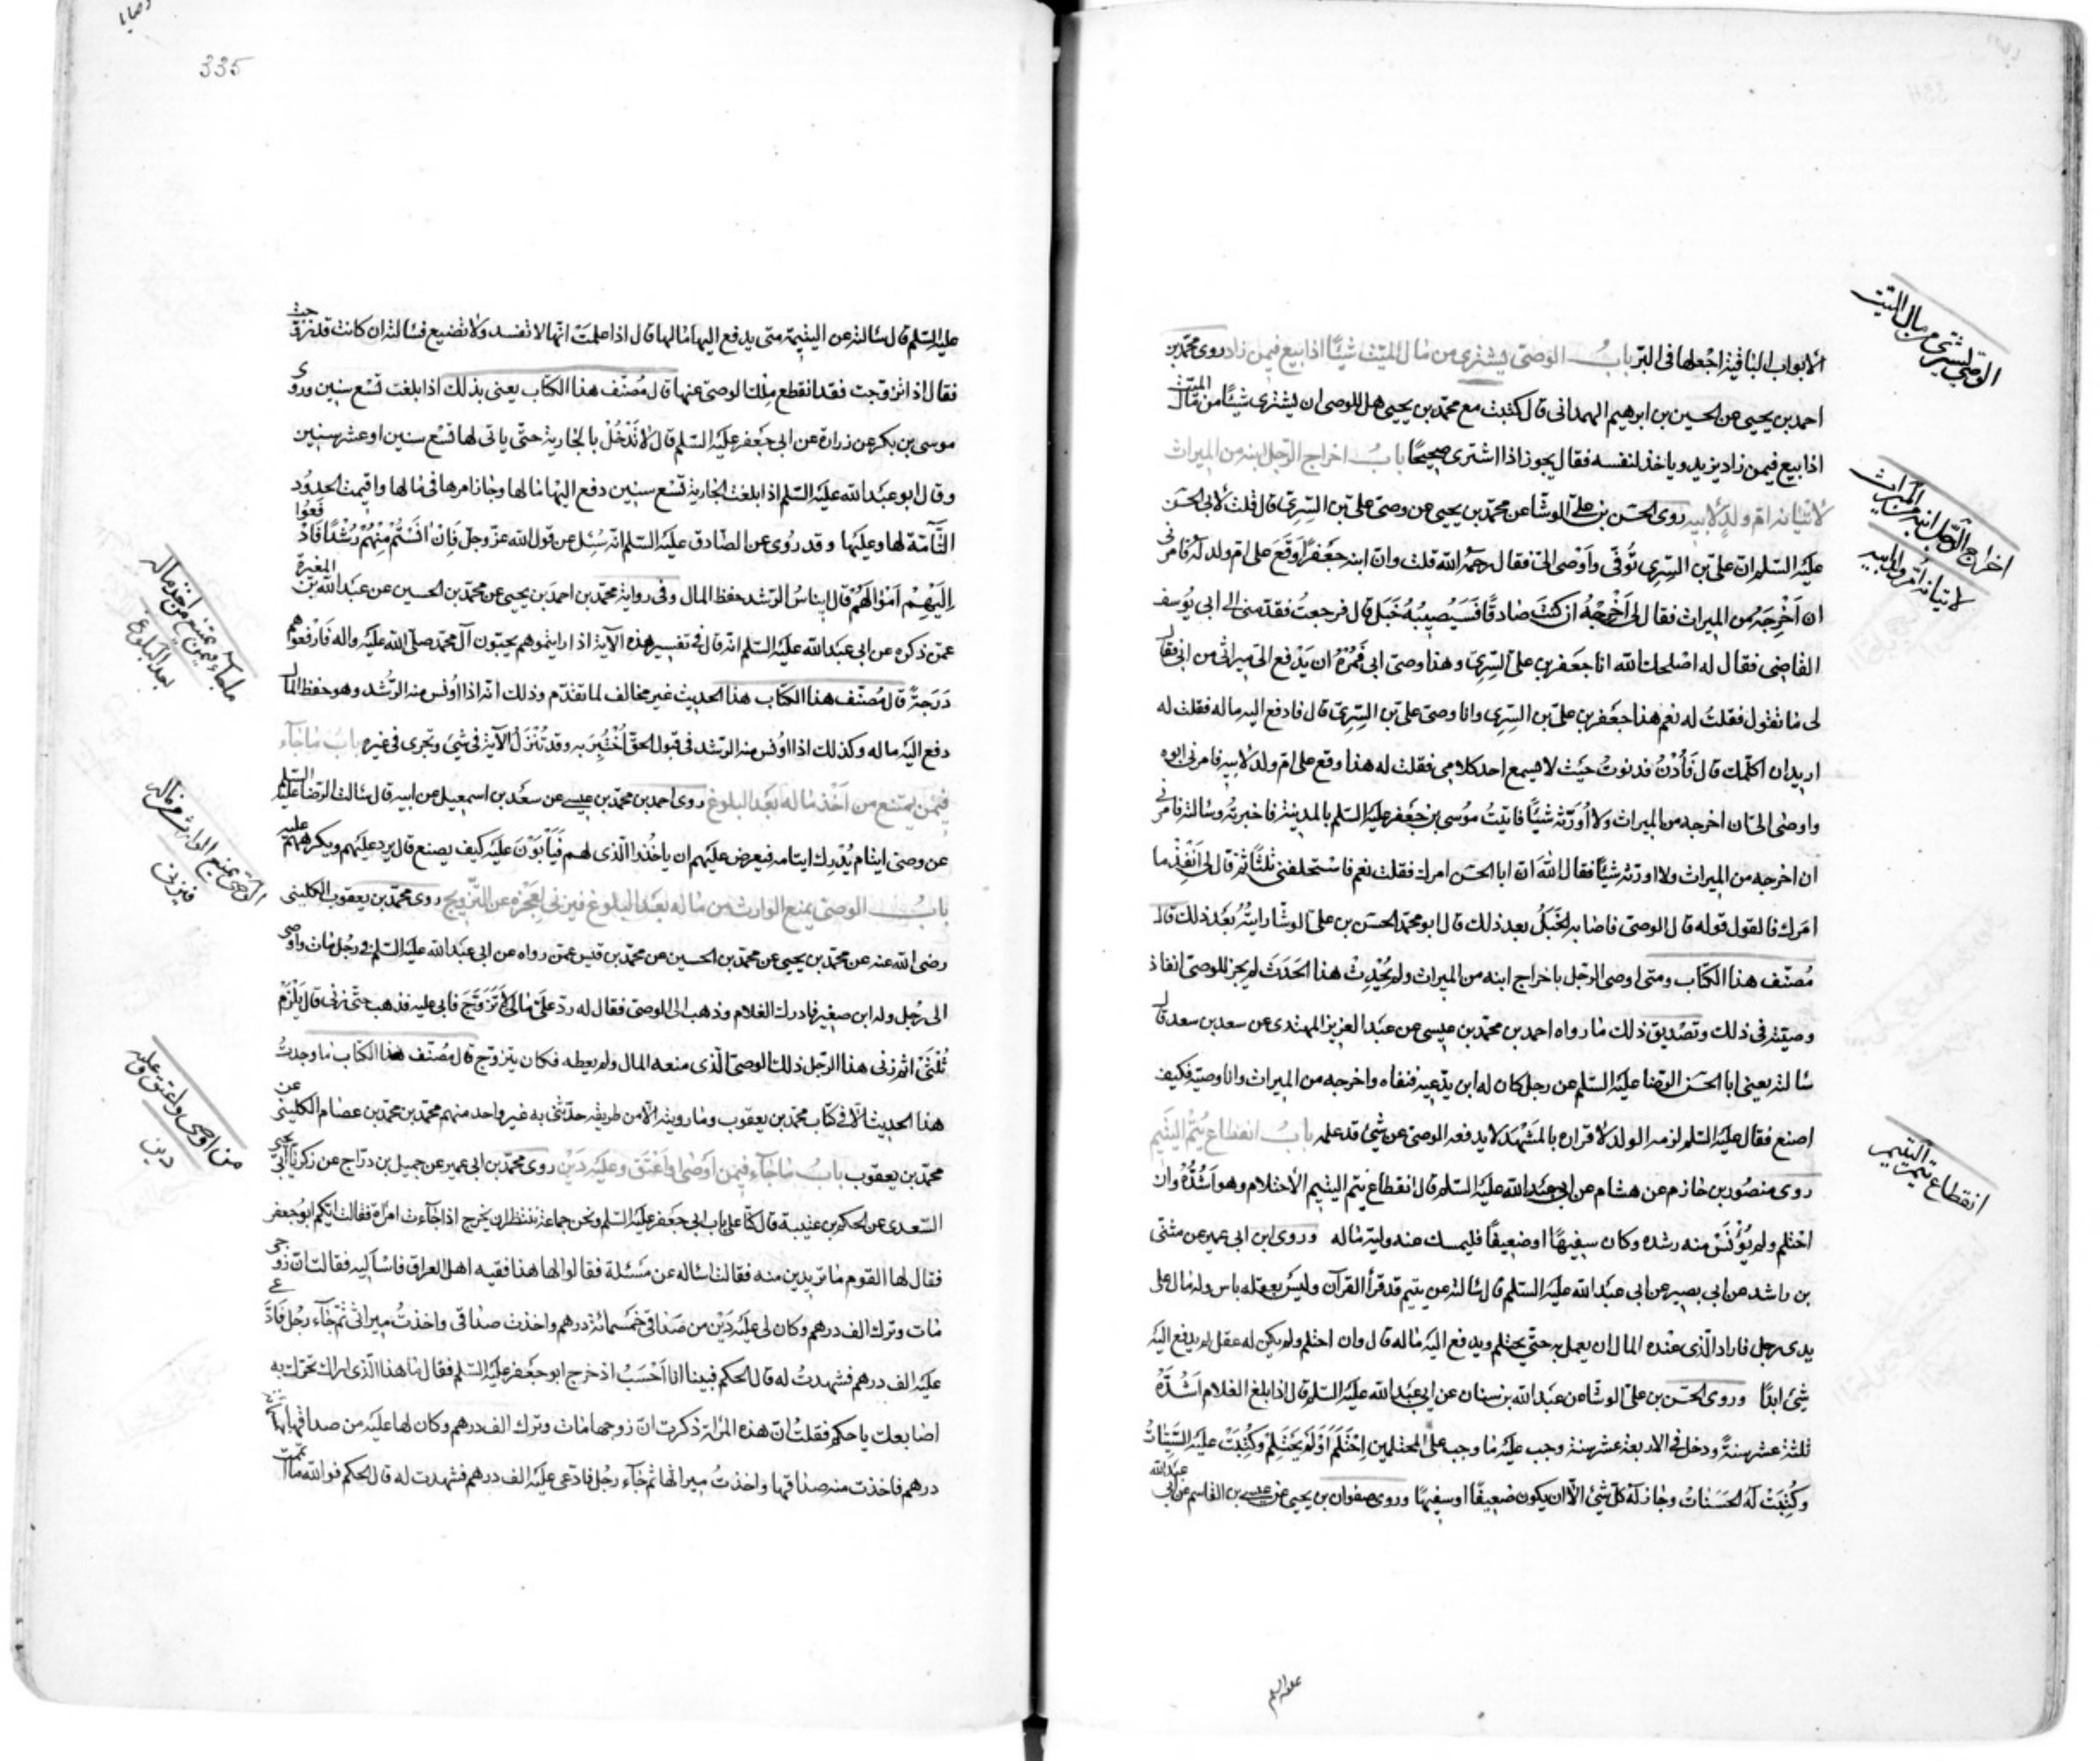 الوصي يشتري من مال الميت
الابواب الباقية اجعلها في البر باب الوصى يشترى من مال الميت شيئا اذا بيع فيمن زاد روى محمد بن
احمد بن يحيى عن الحسين بن ابرهيم الهمدانى قال كتبت مع محمد بن يحيى هل للوصى ان يشترى شيئا من مال الميت
اذا بيع فيمن زاد يزيد وياخذ لنفسه فقال يجوز اذا اشترى صحيحا باب اخراج الرجل ابنه من الميراث
اخراج الرجل ابنه من الميراث
لاتيانه ام ولد لابيه
لاتيانه ام ولد لابيه روى الحسن بن على الوشا عن محمد بن يحيى عن وصى على بن السرى قال قلت لابى الحسن
عليه السلم ان على بن السرى توفى واوصى الى فقال رحمه الله قلت وان ابنه جعفرا وقع على ام ولد له فامرنى
ان اخرجه من الميراث فقال لى اخرجه ان كنت صادقا فسيصيبه خبل قال فرجعت فقدمنى الى ابى يوسف
القاضى فقال له اصلحك الله انا جعفر بن على السرى وهذا وصى ابى فمره ان يدفع الى ميراثى من ابى فقال
لى ما تقول فقلت له نعم هذا جعفر بن على بن السرى وانا وصى على بن السرى قال فادفع اليه ماله فقلت له
اريد ان اكلمك قال فادن فدنوت حيث لا يسمع احد كلامى فقلت له هذا وقع على ام ولد لابيه فامرنى ابوه
واوصى الى ان اخرجه من الميراث ولا اورثه شيئا فاتيت موسى بن جعفر عليه السلم بالمدينة فاخبرته وسالته فامرنى
ان اخرجه من الميراث ولا اورثه شيئا فقال الله ان ابا الحسن امرك فقلت نعم فاستحلفنى ثلثا ثم قال لى انفذ ما
امرك فالقول قوله قال الوصى فاصابه الخبل بعد ذلك قال ابو محمد الحسن بن على الوشا رايته بعد ذلك قال
مصنف هذا الكتاب ومتى اوصى الرجل باخراج ابنه من الميراث ولم يحدث هذا الحدث لم يجز للوصى انفاذ
وصيته فى ذلك وتصديق ذلك ما رواه احمد بن محمد بن عيسى عن عبد العزيز المهتدى عن سعد بن سعد قال
سالته يعنى ابا الحسن الرضا عليه السلم عن رجل كان له ابن يدعيه فنفاه واخرجه من الميراث وانا وصيه فكيف
اصنع فقال عليه السلم لزمه الولد لاقراره بالمشهد لا يدفعه الوصى عن شئ قد علمه باب انقطاع يتم اليتيم
انقطاع يتم اليتيم
روى منصور بن حازم عن هشام عن ابى عبد الله عليه السلم قال انقطاع يتم اليتيم الاحتلام وهو اشده وان
احتلم ولم يونس منه رشده وكان سفيها او ضعيفا فليمسك عنه وليه ماله وروى ابن ابى عمير عن مثنى
بن راشد عن ابى بصير عن ابى عبد الله عليه السلم قال سالته عن يتيم قد قرا القرآن وليس بعقله باس وله مال على
يدى رجل فاراد الذى عنده المال ان يعمل به حتى يحتلم ويدفع اليه ماله قال وان احتلم ولم يكن له عقل لم يدفع اليه
شئ ابدا وروى الحسن بن على الوشا عن عبد الله بن سنان عن ابى عبد الله عليه السلم قال اذا بلغ الغلام اشده
ثلثة عشر سنة ودخل فى الاربعة عشر سنة وجب عليه ما وجب على المحتلمين احتلم او لم يحتلم وكتبت عليه السيئات
وكتبت له الحسنات وجاز له كل شئ الا ان يكون ضعيفا او سفيها وروى صفوان بن يحيى عن عيص بن القاسم عن ابى عبد الله
عليه السلم
وصايا
335
عليه السلم قال سالته عن اليتيمة متى يدفع اليها مالها قال اذا علمت انها لا تفسد ولا تضيع فسالته ان كانت قد تزوجت
فقال اذا تزوجت فقد انقطع ملك الوصى عنها قال مصنف هذا الكتاب يعنى بذلك اذا بلغت تسع سنين وروى
موسى بن بكر عن زرارة عن ابى جعفر عليه السلم قال لا تدخل بالجارية حتى ياتى لها تسع سنين او عشر سنين
وقال ابو عبد الله عليه السلم اذا بلغت الجارية تسع سنين دفع اليها مالها وجاز امرها فى مالها واقيمت الحدود
التآمة لها وعليها وقد روى عن الصادق عليه السلم انه سئل عن قول الله عز وجل فان آنستم منهم رشدا فادفعوا
اليهم اموالهم قال ايناس الرشد حفظ المال وفى رواية محمد بن احمد بن يحيى عن محمد بن الحسين عن عبد الله بن المغيرة
ما جاء فيمن يمتنع من اخذ ماله
بعد البلوغ
عمن ذكره عن ابى عبد الله عليه السلم انه قال فى تفسير هذه الآية اذا رايتموهم يحبون آل محمد صلى الله عليه واله فارفعوهم
درجة قال مصنف هذا الكتاب هذا الحديث غير مخالف لما تقدم وذلك انه اذا اونس منه الرشد وهو حفظ المال
دفع اليه ماله وكذلك اذا اونس منه الرشد فى قبول الحق اختبر به وقد تنزل الآية فى شئ وتجرى فى غيره باب ما جآء
فيمن يمتنع من اخذ ماله بعد البلوغ روى احمد بن محمد بن عيسى عن سعد بن اسمعيل عن ابيه قال سالت الرضا عليه السلم
عن وصى ايتام يدرك ايتامه فيعرض عليهم ان ياخذوا الذى لهم فيابون عليه كيف يصنع قال يرد عليهم ويكرههم عليه
الوصي يمنع الوارث ماله
فيزني
باب الوصى يمنع الوارث من ماله بعد البلوغ فيزنى لعجزه عن التزويج روى محمد بن يعقوب الكلينى
رضى الله عنه عن محمد بن يحيى عن محمد بن الحسين عن محمد بن قيس عمن رواه عن ابى عبد الله عليه السلم فى رجل مات واوصى
الى رجل وله ابن صغير فادرك الغلام وذهب الى الوصى فقال له رد على مالى لاتزوج فابى عليه فذهب حتى زنى قال يلزم
ثلثى اثم زنى هذا الرجل ذلك الوصى الذى منعه المال ولم يعطه فكان يتزوج قال مصنف هذا الكتاب ما وجدت
هذا الحديث الا فى كتاب محمد بن يعقوب وما رويته الا من طريقه حدثنى به غير واحد منهم محمد بن محمد بن عصام الكلينى عن
من اوصى واعتق وعليه
دين
محمد بن يعقوب باب ما جآء فيمن اوصى او اعتق وعليه دين روى محمد بن ابى عمير عن جميل بن دراج عن زكريا ابى يحيى
السعدى عن الحكم بن عتيبة قال كنا على باب ابى جعفر عليه السلم ونحن جماعة ننتظر ان يخرج اذا جآءت امراة فقالت ايكم ابو جعفر
فقال لها القوم ما تريدين منه فقالت اساله عن مسئلة فقالوا لها هذا فقيه اهل العراق فاساليه فقالت ان زوجى
مات وترك الف درهم وكان لى عليه دين من صداقى خمسمائة درهم واخذت صداقى واخذت ميراثى ثم جآء رجل فادعى
عليه الف درهم فشهدت له قال الحكم فبينا انا احسب اذ خرج ابو جعفر عليه السلم فقال ما هذا الذى اراك تحرك به
اصابعك يا حكم فقلت ان هذه المراة ذكرت ان زوجها مات وترك الف درهم وكان لها عليه من صداقها
درهم فاخذت منه صداقها واخذت ميراثها ثم جآء رجل فادعى عليه الف درهم فشهدت له قال الحكم فوالله ما اتممت